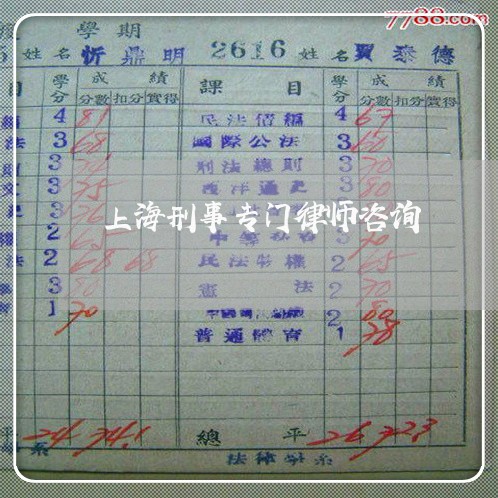 7788.com
學期
姓名 忻鼎明 2616 姓名 賈泰德
目 學分 成績 課目 學分 成績
分數 扣分 實得 分數 扣分 實得
4 81 民法債編 4 67
法 3 68 國際公法 3 60
3 刑法總則 3 70
3 75 西洋通史 3 80
3 76
上海刑事专门律师咨询
2 65 3 70
法 2 68 68 民法物權 2 65
3 80 憲法 2 70
育 1 70 2 80
普通體育 1 78
平 24 74.1 總平 26 72.3
系 法律學系